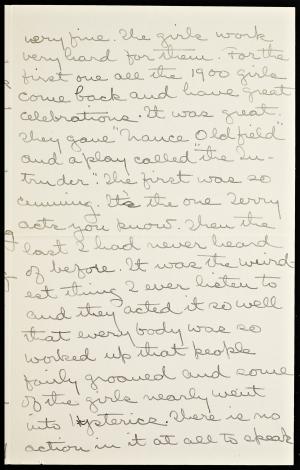 very fine. The girls work
very hard for them. For the
first one all the 1900 girls
come back and have great
celebrations. It was great.
They gave "Nance Oldfield"
and a play called "the In-
truder". The first was so
cunning. It's the one Terry
acts you know. Then the
last I had never heard
of before. It was the weird-
est thing I ever listen to
and they acted it so well
that every body was so
worked up that people
fairly groaned and some
of the girls nearly went
into hysterics. There is no
action in it at all to speak